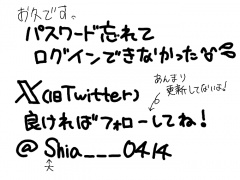 お久です。
パスワード忘れて
ログインできなかったな
X(旧Twitter)
あんまり
更新してないよ!
良ければフォローしてね!
@Shia___0414
大